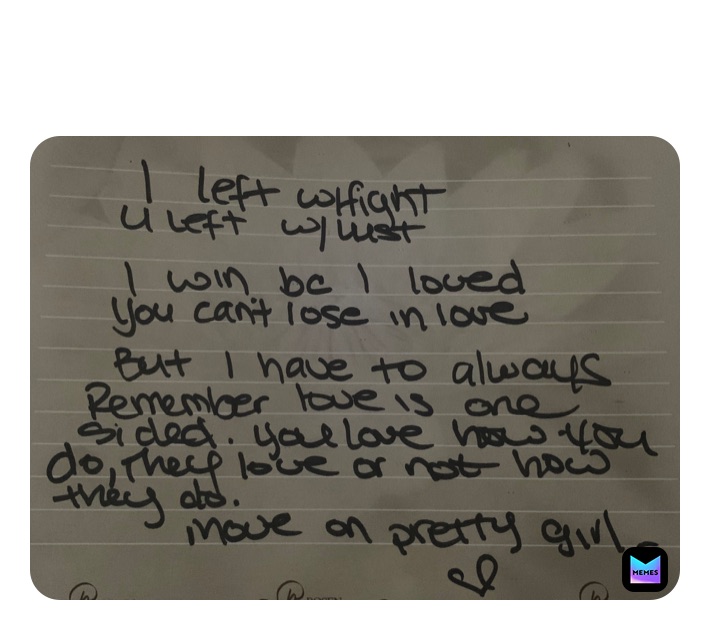 I left w/fight
u left w/ lust
I win bc I loved
You can't lose in love
But I have to always
Remember love is one
sided. you love how you
do, They love or not how
they do.
move on pretty girl.
MEMES